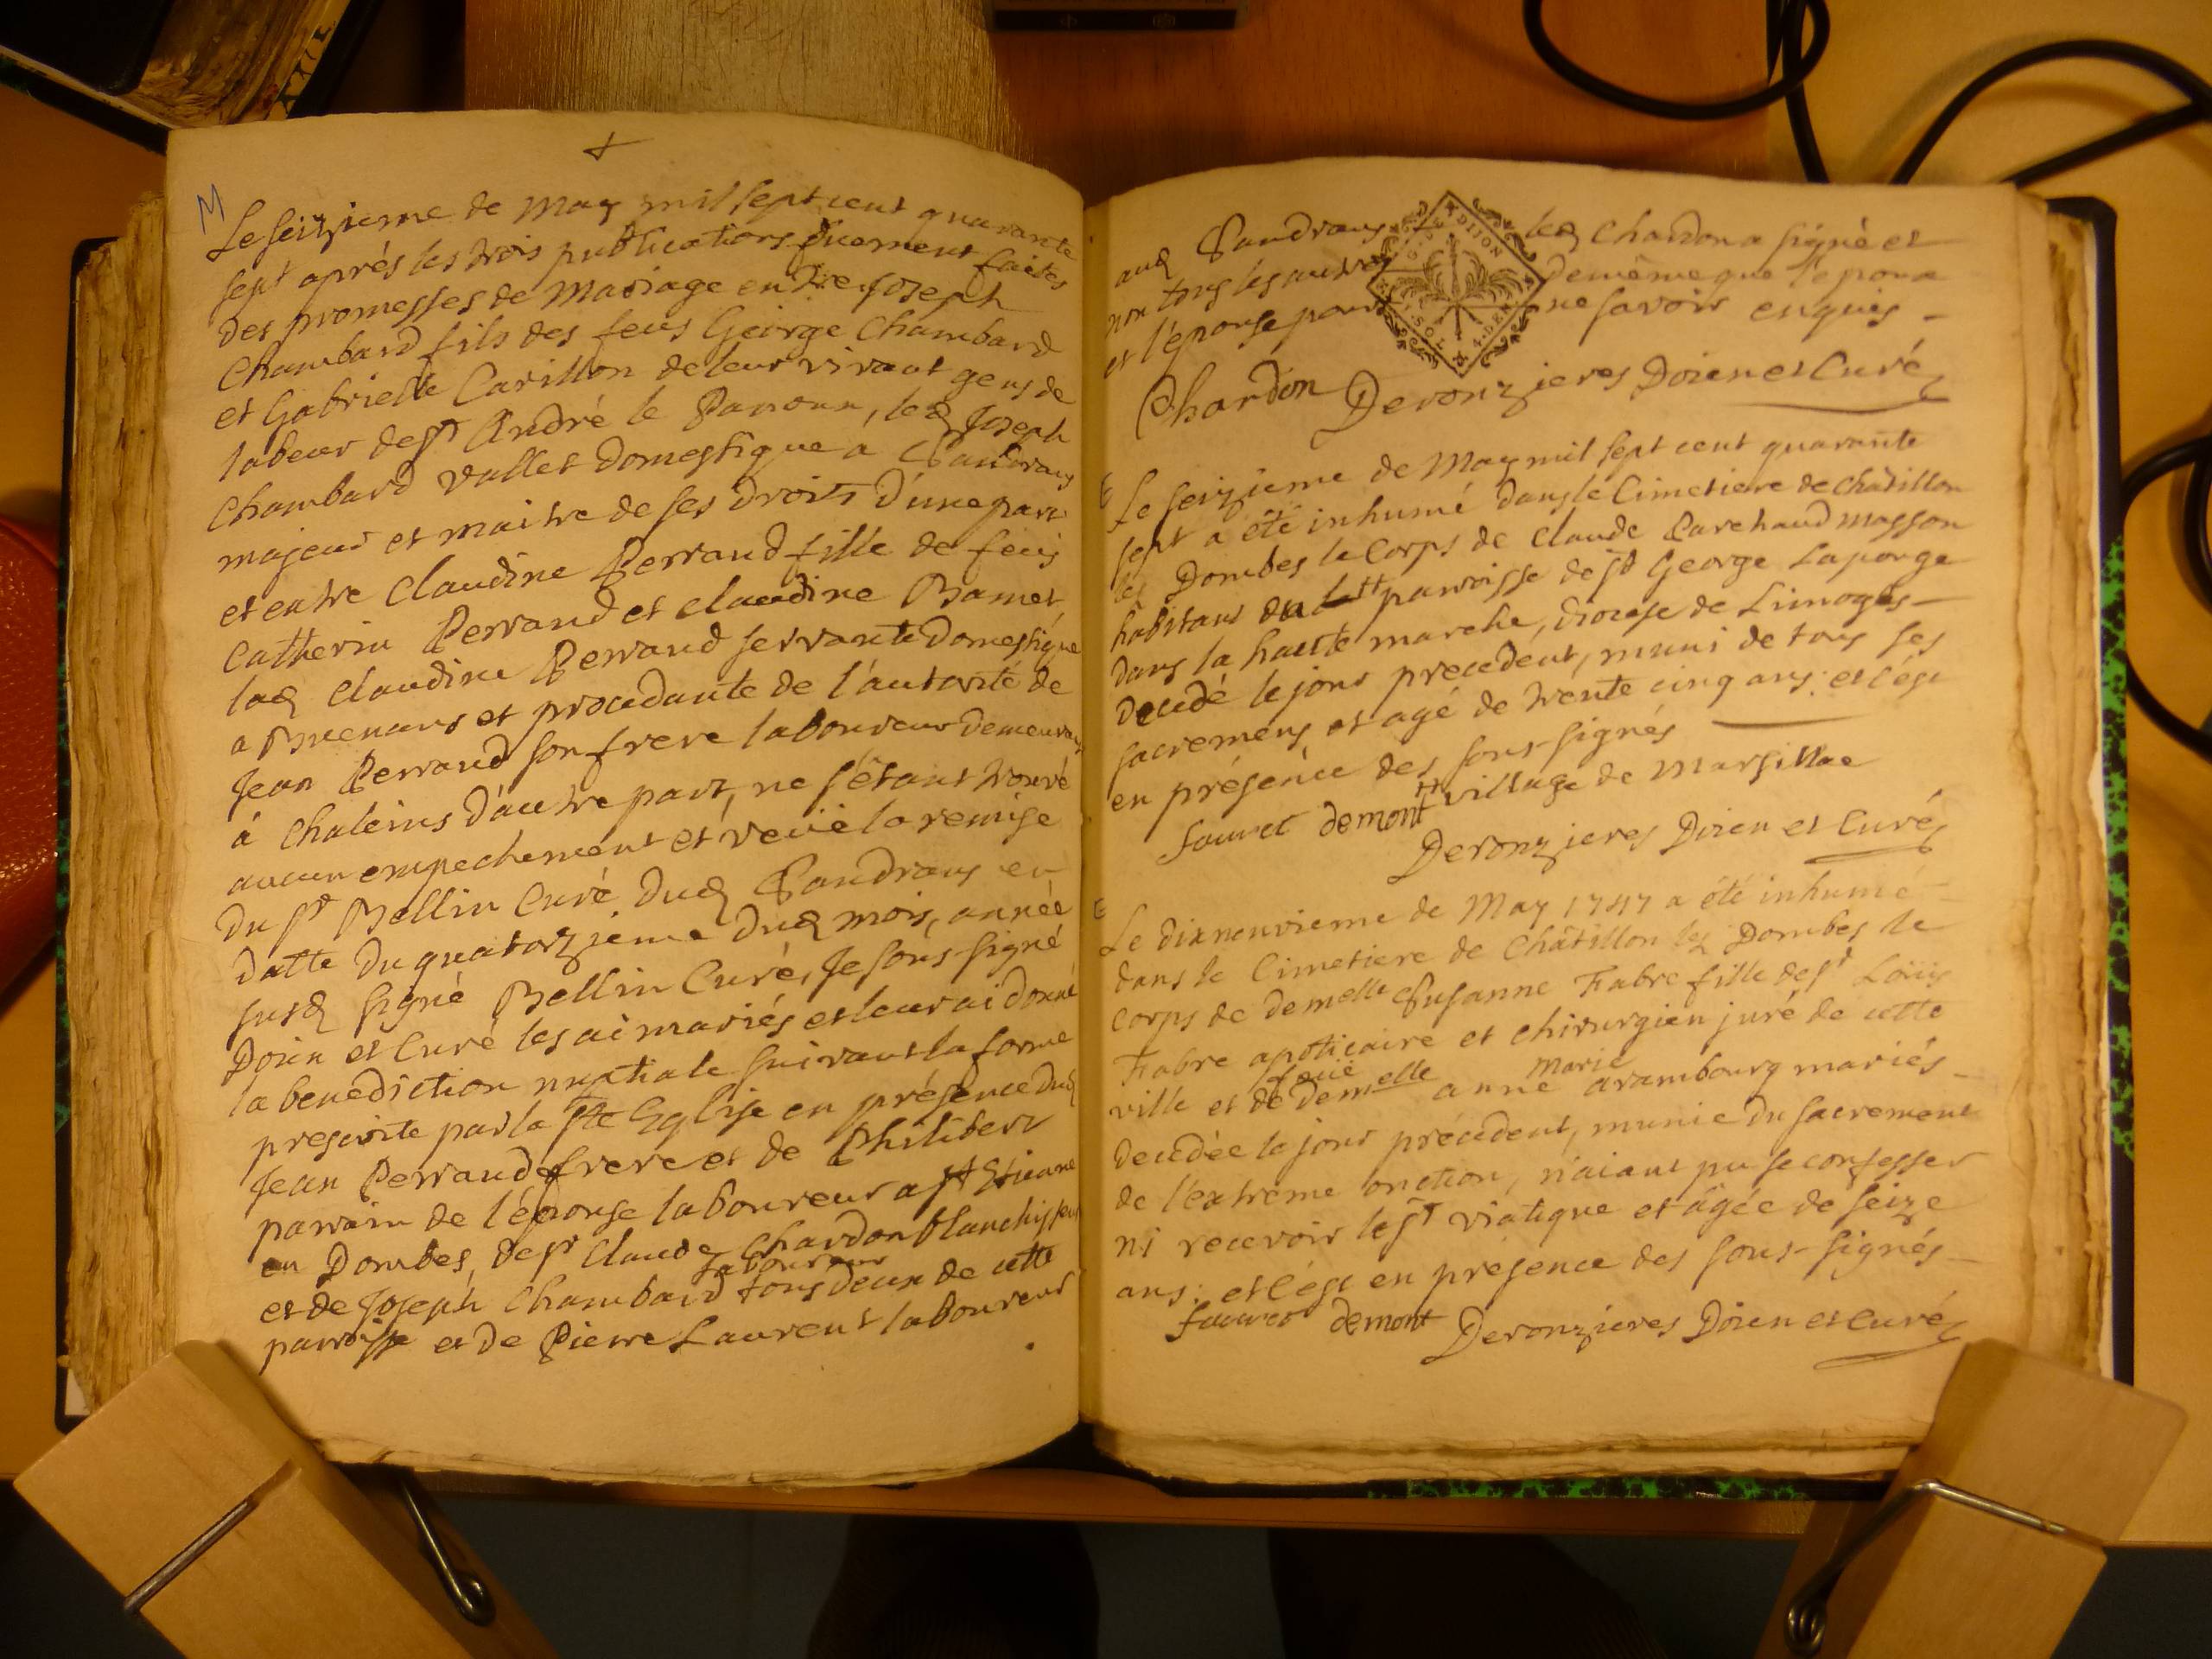 M
Le seizieme de May mil sept cent quarante
sept aprés les trois publications duement faites
des promesses de Mariage entre Joseph
Chambard fils des feus George Chambard
et Gabrielle Carillon de leur vivant gens de
labeur de st André le Panoux, led Joseph
Chambard vallet domestique a Sandrans
majeur et maitre de ses droits d'une part
et entre Claudine Perraud fille de feus
Catherin Perraud et claudine Bamet,
lad Claudine Perraud servante domestique
a et procedante de l'autorité de
Jean Perraud son frere laboureur demeurant
à Chaleins d'autre part, ne s'étant trouvé
aucun empechement et veüe la remise
du sr Bellin Curé dud Sandrans en
datte du quatorzieme dud mois, année
susd signé Bellin Curé, Je sous-signé
Doien et Curé les ai mariés et leur ai donné
la benediction nuptiale suivant la forme
prescrite par la ste Eglise en présence dud
Jean Perraud frere et de Philibert
parrain de l'épouse laboureur a st Etienne
en Dombes, de sr Claude Chardon blanchisseur
laboureur
et de Joseph Chambard tous deux de cette
parroisse et de Pierre Laurent laboureur
aud Sandrans led Chardon a signé et
non tous les autres de même que l'époux
et l'épouse pour ne savoir enquis -
DIJON
SOL 4 DEN
Chardon Deronzieres Doien et Curé
E
Le seizieme de May mil sept cent quarante
sept a été inhumé dans le Cimetiere de Chatillon
lez Dombes le Corps de Claude Parchaud masson
habitant parroisse de st George Laponge
dans la haute marche, diocese de Limoges -
decedé le jour precedent, muni de tous ses
sacremens et agé de trente cinq ans: et c'ést
en présence des sous-signés
village de Marsillac
fauvet demont
Deronzieres Doien et Curé
E
Le dixneuvieme de May 1747 a été inhumé
dans le Cimetiere de Châtillon lez Dombes le
corps de demelle Susanne Fabre fille de sr Loüis
Fabre apoticaire et chirurgien juré de cette
marie
ville et de demelle anne arambourg mariés -
decedée le jour précedent, munie du sacrement
de l'extrême onction, n'aiant pu se confesser
ni recevoir le st viatique et âgée de seize
ans: et c'ést en présence des sous-signés -
fauvet demont Deronzieres Doien et Curé